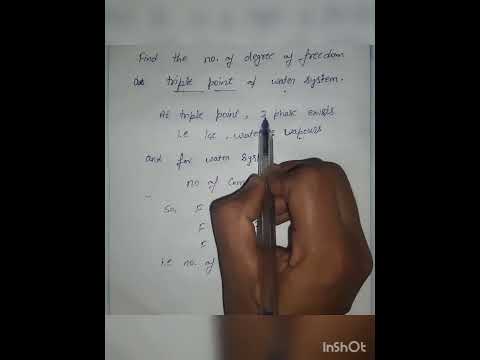 Find the no. of degree of freedom
at triple point of water system.
At triple point, 3 phase exists
i.e ice, water & vapours
and for water sys
no of com
So, F
F
F
i.e no. of
InShOt